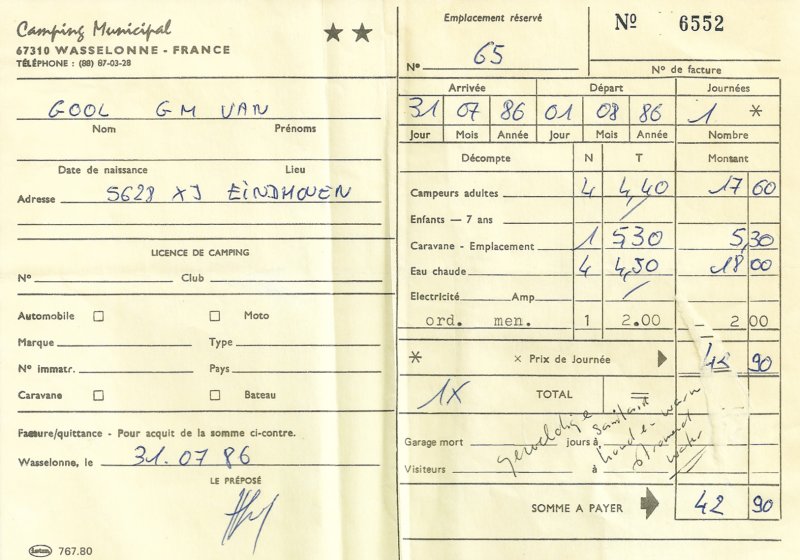 Camping Municipal
67310 WASSELONNE - FRANCE
TÉLÉPHONE : (88) 87-03-28
GOOL GM VAN
Nom Prénoms
Date de naissance Lieu
Adresse 5628 XJ EINDHOVEN
LICENCE DE CAMPING
N° Club
Automobile Moto
Marque Type
N° immatr. Pays
Caravane Bateau
Facture/quittance - Pour acquit de la somme ci-contre.
Wasselonne, le 31.07 86
LE PRÉPOSÉ
767.80
Emplacement réservé
N° 65
N° 6552
N° de facture
Arrivée Départ Journées
31 07 86 01 08 86 1 *
Jour Mois Année Jour Mois Année Nombre
Décompte N T Montant
Campeurs adultes 4 4,40 17 60
Enfants — 7 ans
Caravane - Emplacement 1 5,30 5,30
Eau chaude 4 4,50 18 00
Electricité Amp
ord. men. 1 2.00 2 00
* × Prix de Journée 42 90
1X TOTAL
Garage mort jours à
Visiteurs à
geweldige sanitair
koud- en warm
stromend
water
SOMME A PAYER 42 90